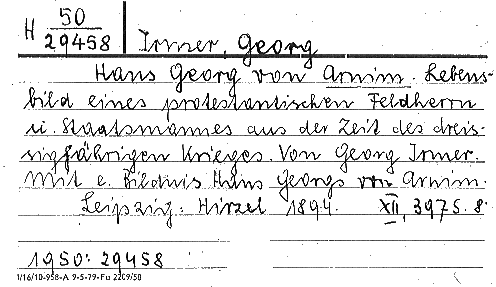 H 50/29458 Irmer, Georg
Hans Georg von Arnim. Lebens-
bild eines protestantischen Feldherrn
u. Staatsmannes aus der Zeit des dreis-
sigjährigen Krieges. Von Georg Irmer.
Mit e. Bildnis Hans Georgs von Arnim.
Leipzig: Hirzel 1894. XII, 397 S. 8°
1950: 29458
1/16/10-958-A 9-5-79-Fu 2209/50